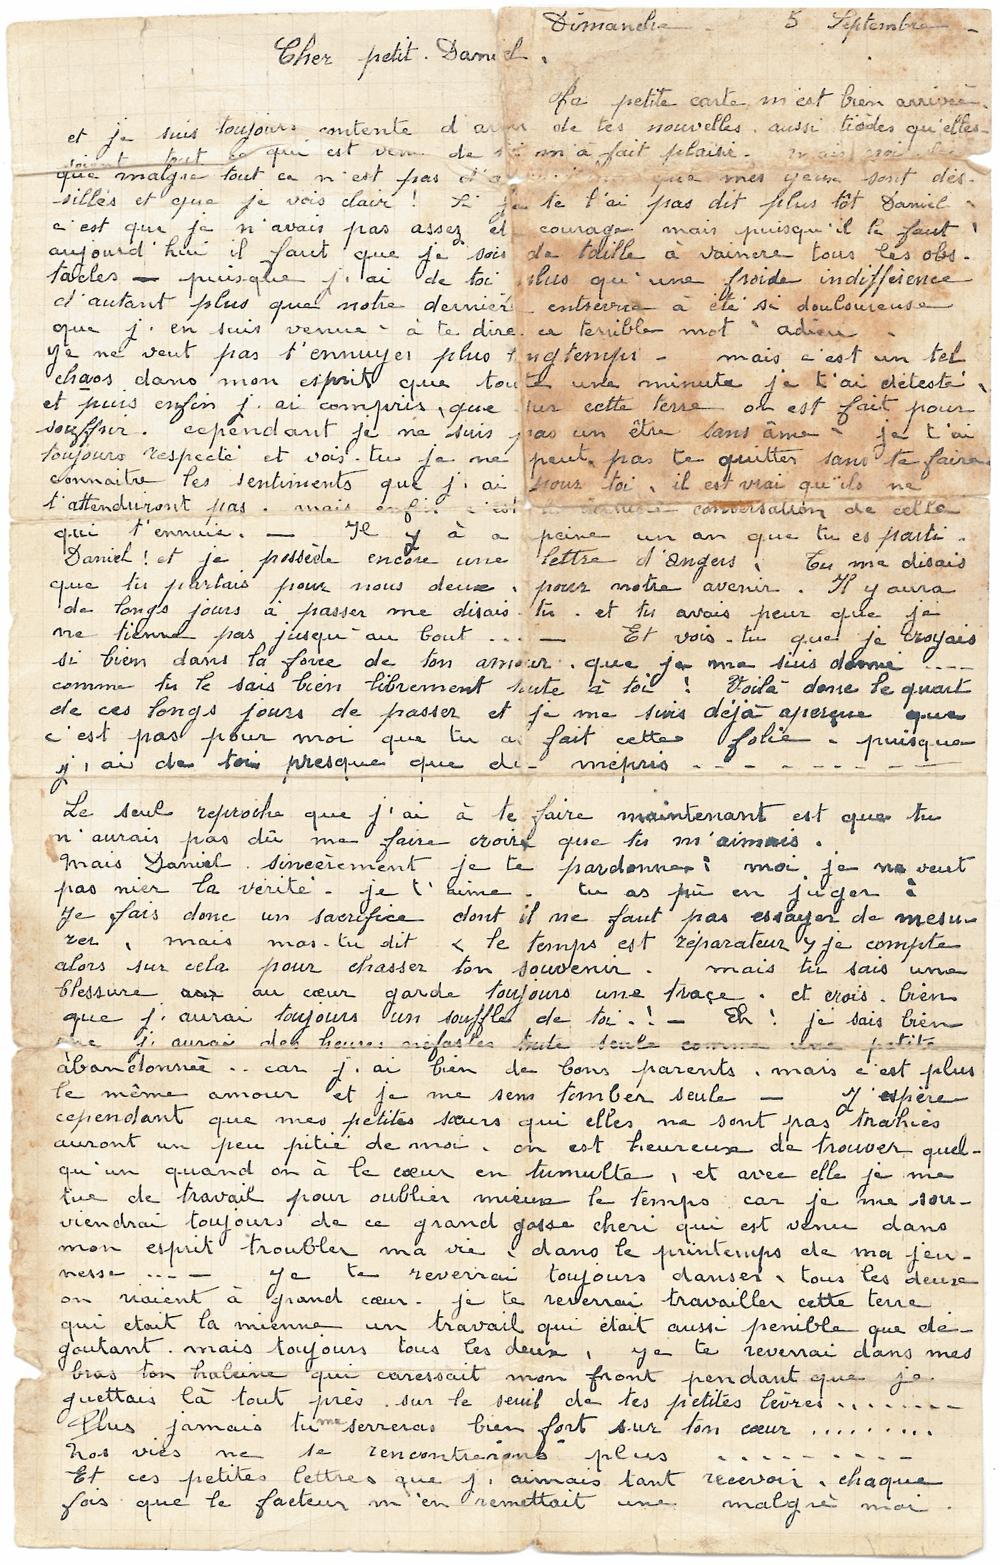 Dimanche 5 Septembre -
Cher petit Daniel,
Ta petite carte m'est bien arrivée.
et je suis toujours contente d'avoir de tes nouvelles, aussi tièdes qu'elles
soient tout ce qui est venu de toi m'a fait plaisir. mais crois
que malgré tout ce n'est pas que mes yeux sont des-
sillés et que je vois clair ! Si je te l'ai pas dit plus tôt Daniel
c'est que je n'avais pas assez de courage mais puisqu'il le faut !
aujourd'hui il faut que je sois de taille à vaincre tous les obs-
tacles — puisque j'ai de toi plus qu'une froide indifférence
d'autant plus que notre dernière entrevue à été si douloureuse
que j'en suis venue à te dire ce terrible mot " adieu "
Je ne veut pas t'ennuyer plus longtemps - mais c'est un tel
chaos dans mon esprit que toute une minute je t'ai détesté,
et puis enfin j'ai compris, que sur cette terre on est fait pour
souffrir. cependant je ne suis pas un être sans âme - je t'ai
toujours respecté et vois-tu je ne peut pas te quitter sans te faire
connaitre les sentiments que j'ai pour toi, il est vrai qu'ils ne
t'attendriront pas. mais enfin c'est la dernière conversation de celle
qui t'ennuie. — Il y à a peine un an que tu es parti.
Daniel ! et je possède encore une lettre d'Angers, Tu me disais
que tu partais pour nous deux, pour notre avenir. Il y aura
de longs jours à passer me disais-tu. et tu avais peur que je
ne tienne pas jusqu'au bout ... — Et vois-tu que je croyais
si bien dans la force de ton amour, que je me suis donné ....
comme tu le sais bien librement toute à toi ! Voilà donc le quart
de ces longs jours de passer et je me suis déjà aperçue que
c'est pas pour moi que tu as fait cette folie - puisque
j'ai de toi presque que du mépris - - - - - - -
Le seul reproche que j'ai à te faire maintenant est que tu
n'aurais pas dû me faire croire que tu m'aimais.
Mais Daniel sincèrement je te pardonne ; moi je ne veut
pas nier la vérité - je t'aime - tu as pû en juger :
Je fais donc un sacrifice dont il ne faut pas essayer de mesu-
rer, mais mas-tu dit « le temps est réparateur » je compte
alors sur cela pour chasser ton souvenir. mais tu sais une
blessure au cœur garde toujours une trace. et crois-bien
que j'aurai toujours un souffle de toi.! — Eh ! je sais bien
que j'aurai des heures néfastes toute seule comme une petite
àbandonnée .. car j'ai bien de bons parents, mais c'est plus
le même amour et je me sens tomber seule — J'espère
cependant que mes petites sœurs qui elles ne sont pas trahies
auront un peu pitié de moi. on est heureuse de trouver quel-
qu'un quand on à le cœur en tumulte, et avec elle je me
tue de travail pour oublier mieux le temps car je me sou-
viendrai toujours de ce grand gosse cheri qui est venu dans
mon esprit troubler ma vie, dans le printemps de ma jeu-
nesse ... — Je te reverrai toujours danser, tous les deux
on riaient à grand cœur. je te reverrai travailler cette terre
qui etait la mienne un travail qui était aussi penible que dé-
goutant. mais toujours tous les deux, je te reverrai dans mes
bras ton haleine qui caressait mon front pendant que je
guettais là tout près sur le seuil de tes petites lèvres ........
Plus jamais tu me serreras bien fort sur ton cœur .........
Nos vies ne se rencontrerons plus - - - - - - -
Et ces petites lettres que j'aimais tant recevoir, chaque
fois que le facteur m'en remettait une malgré moi.